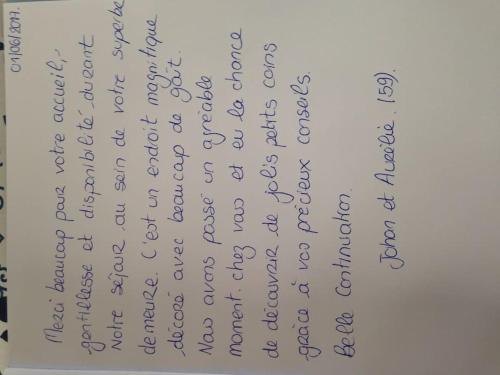 01/06/2017.
Merci beaucoup pour votre accueil,
gentillesse et disponibilité durant
Notre séjour au sein de votre superbe
demeure. C'est un endroit magnifique
décoré avec beaucoup de goût.
Nous avons passé un agréable
moment chez vous et eu la chance
de découvrir de jolis petits coins
grâce à vos précieux conseils.
Belle Continuation.
Johan et Aurélie. (59).